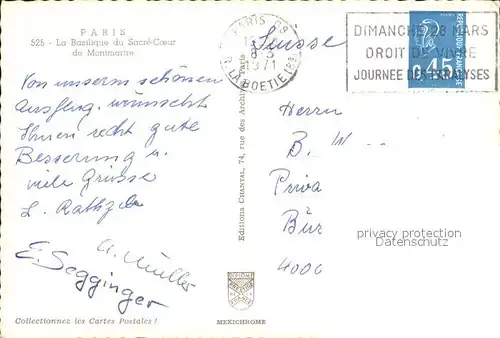 PARIS
525 - La Basilique du Sacré-Cœur
de Montmartre
Von unserm schönen
Ausflug wünscht
Ihnen recht gute
Besserung u.
viele Grüsse
E. Segginger
Müller
Collectionnez les Cartes Postales !
Editions CHANTAL, 74, rue des Archives, Paris
MEXICHROME
PARIS 08
1971
R. LA BOETIE (8e)
DIMANCHE 28 MARS
DROIT DE VIVRE
JOURNEE DES PARALYSES
REPUBLIQUE FRANCAISE
0,45
Suisse
Herrn
B. W
Priva
Bür
4000
privacy protection
Datenschutz